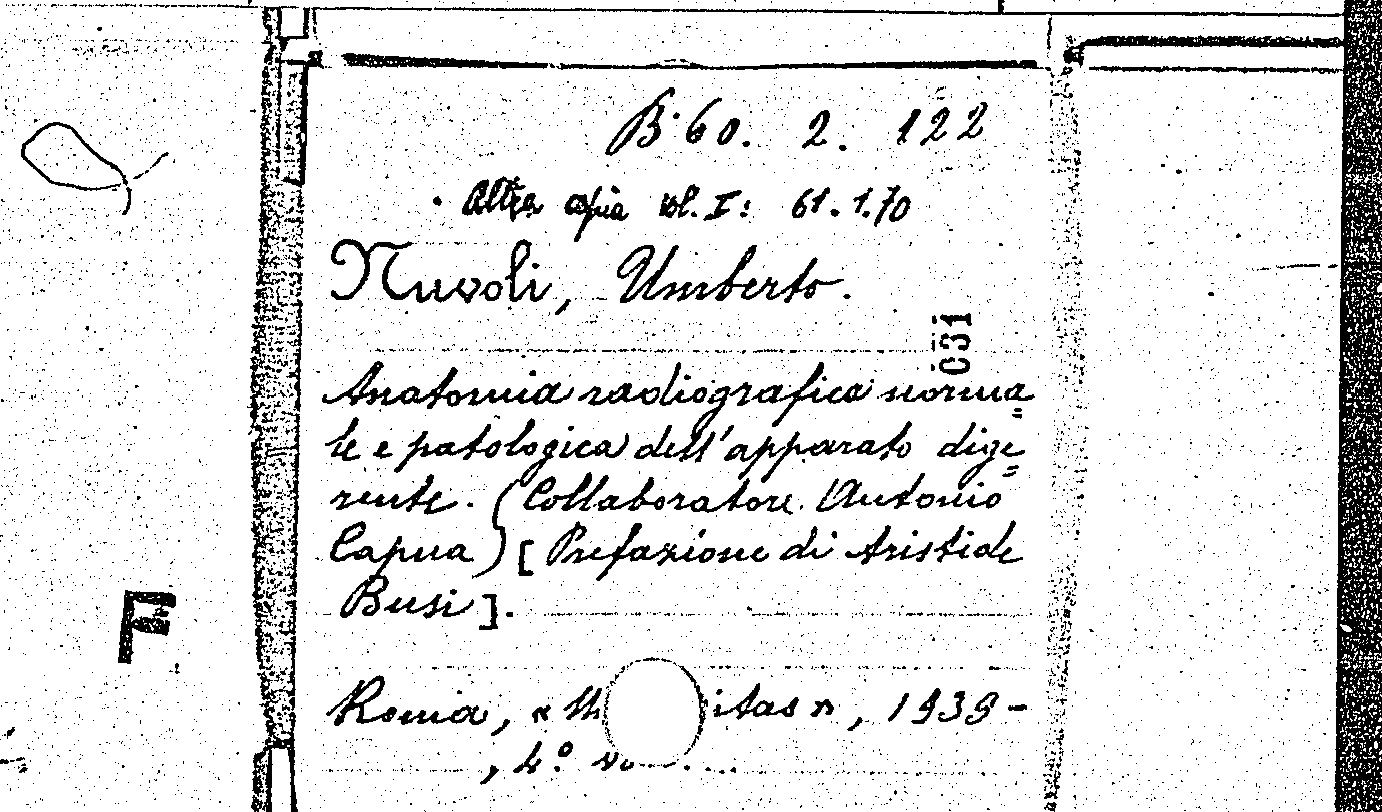 B.60. 2. 122
Altra copia vol. I: 61.1.70
Nuvoli, Umberto.
C31
Anatomia radiografica norma=
le e patologica dell'apparato dige=
rente. (Collaboratore. Antonio
Capua) [Prefazione di Aristide
Busi].
F
Roma, « itas», 1939-
, 4°